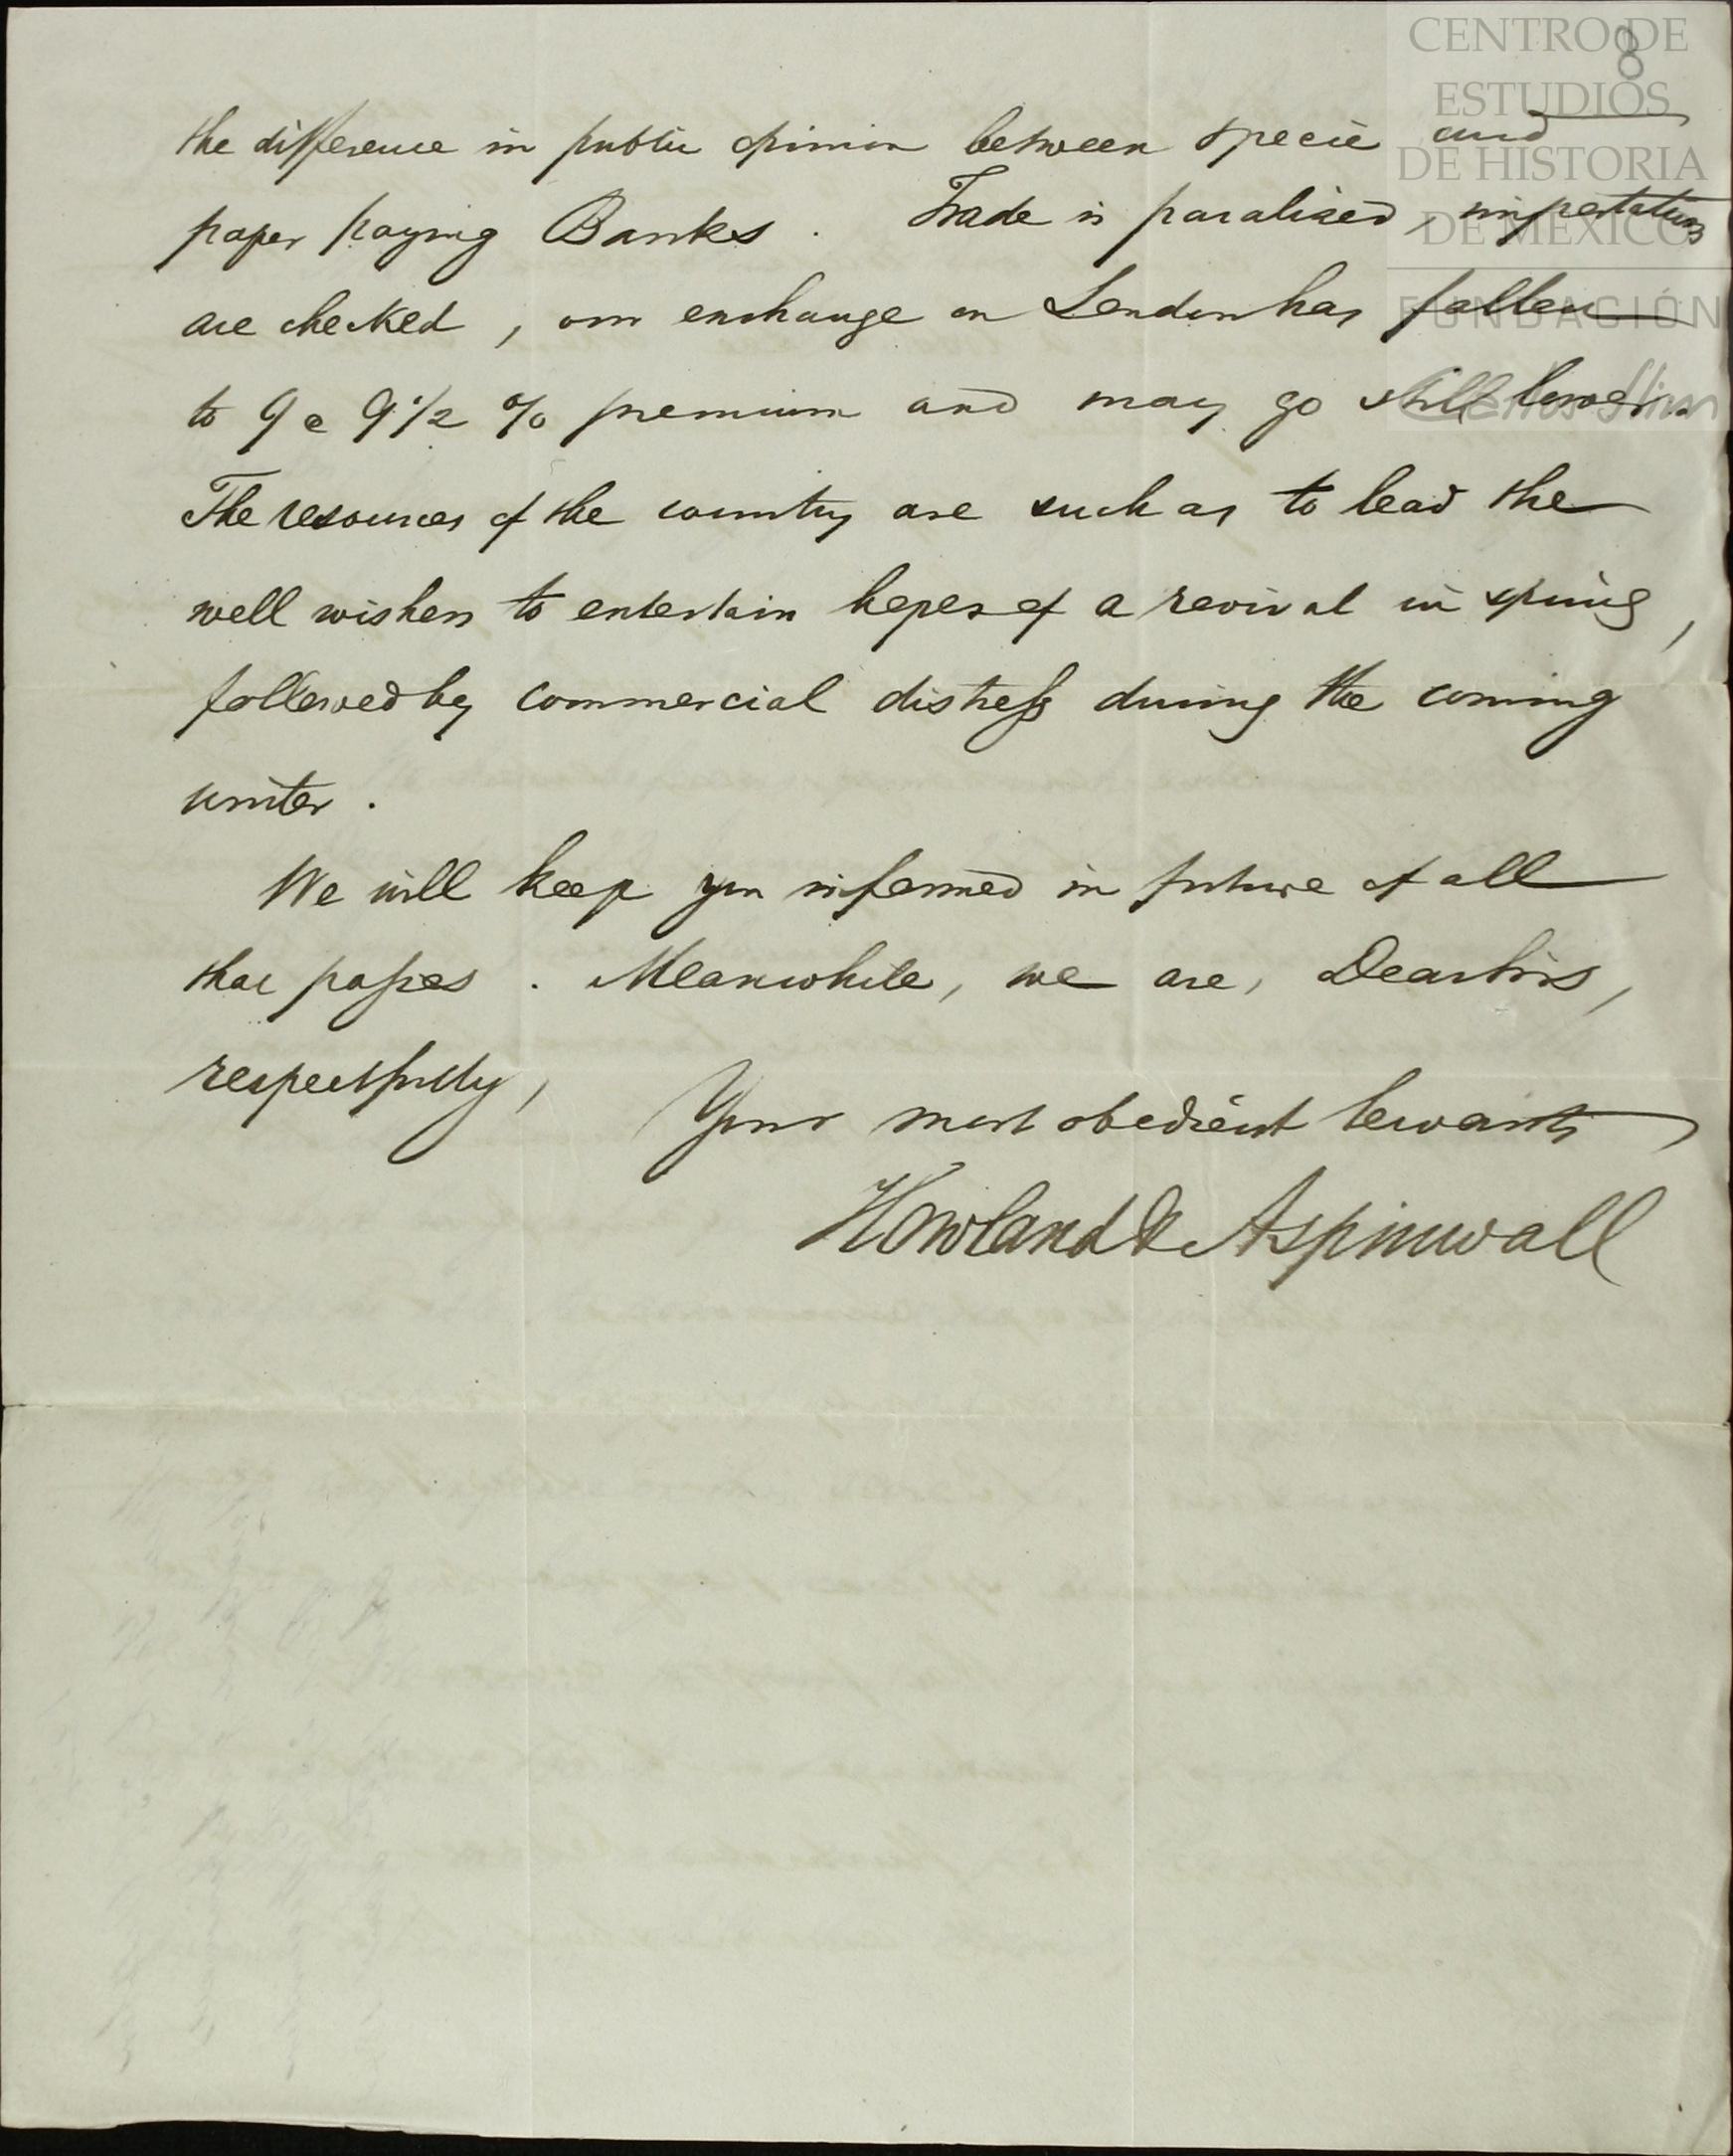 CENTRO DE
ESTUDIOS
DE HISTORIA
DE MÉXICO
FUNDACIÓN
Carlos Slim
8
the difference in public opinion between specie and
paper paying Banks. Trade is paralized, importations
are checked, our exchange on London has fallen
to 9 a 9 1/2 % premium and may go still lower.
The resources of the country are such as to lead the
well wishers to entertain hopes of a revival in spring,
followed by commercial distress during the coming
winter.
We will keep you informed in future of all
that passes. Meanwhile, we are, Dear Sirs,
respectfully,
Your most obedient Servants
Howland & Aspinwall